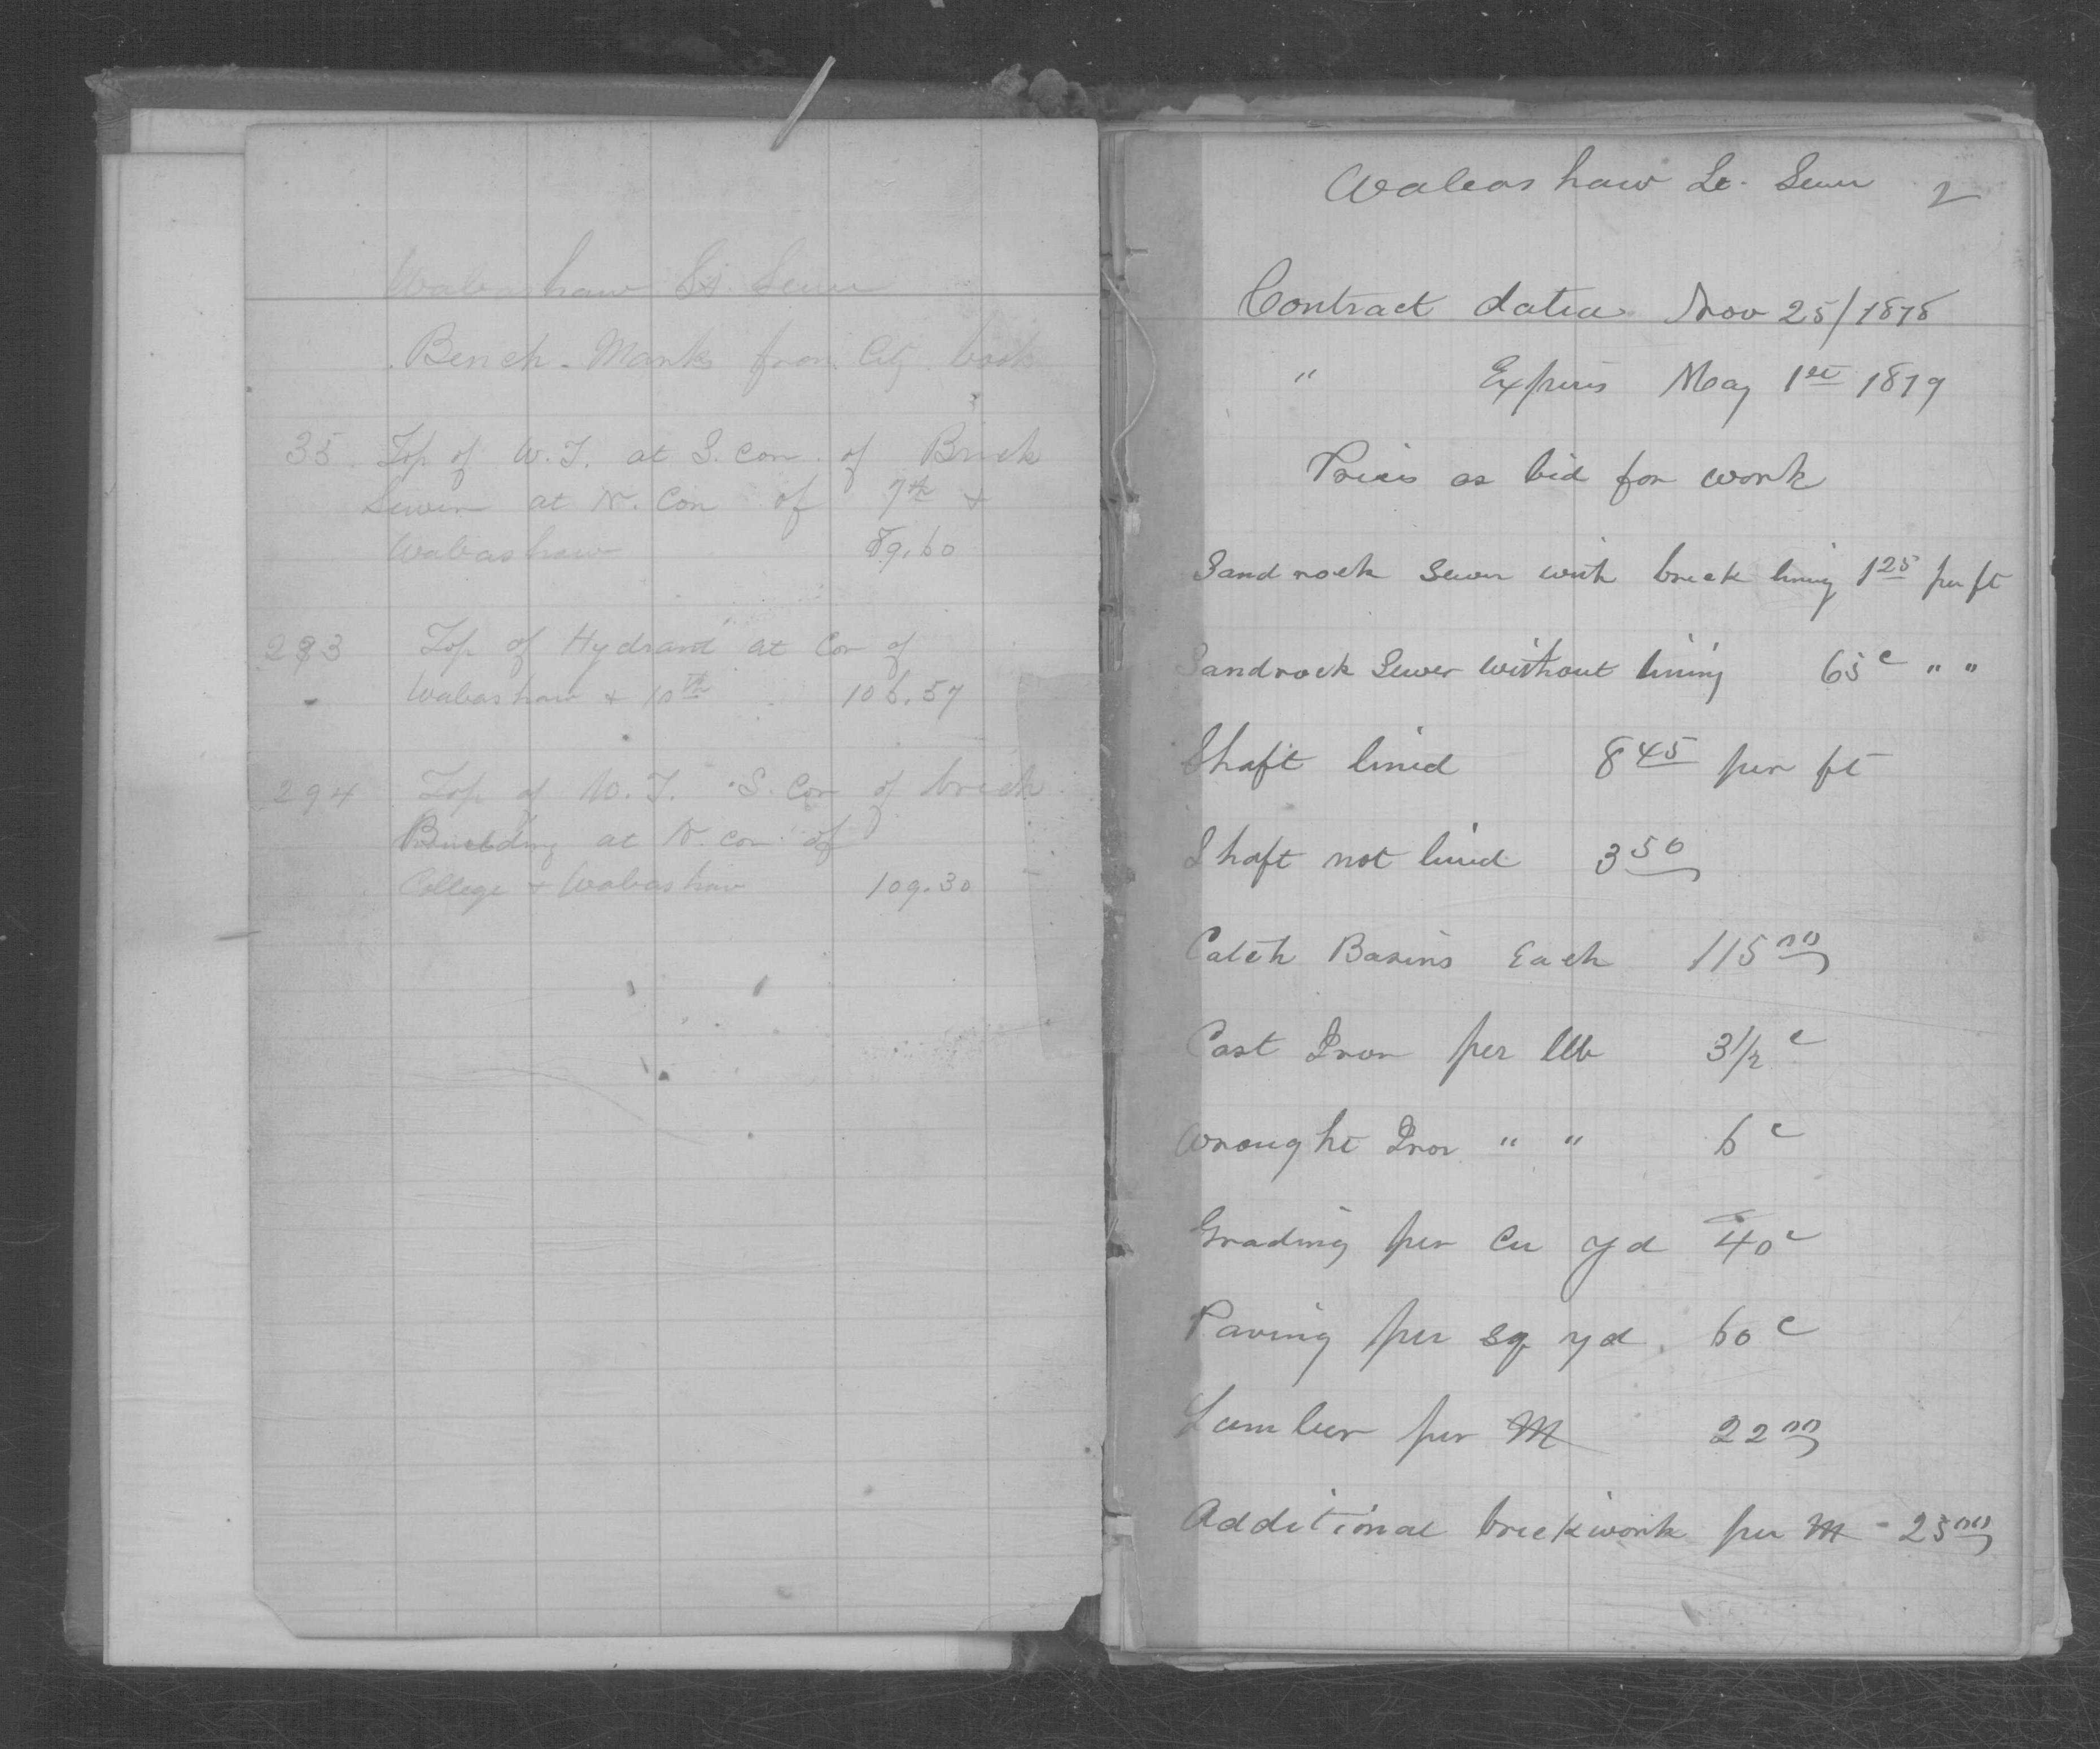 Wabashaw St. Sewer
Bench-Marks from City book
35 Top of W.T. at S. Cor. of Brick
Sewer at N. Cor of 7th &
Wabashaw 89.60
293 Top of Hydrant at Cor of
Wabashaw & 10th 106.57
294 Top of W.T. S. Cor of brick
Building at N. cor. of
College & Wabashaw 109.30
Wabashaw St. Sewer 2
Contract dated Nov 25/1878
" Expires May 1st 1879
Prices as bid for work
Sandrock Sewer with brick lining 1 25 per ft
Sandrock Sewer without lining 65 c " "
Shaft lined 8 45 per ft
Shaft not lined 3 50
Catch Basins Each 115 00
Cast Iron per lb 3 1/2 c
Wrought Iron " " 6 c
Grading per Cu Yd 40 c
Paving per sq yd. 60 c
Lumber per M 22 00
Additional brickwork per M - 25 00